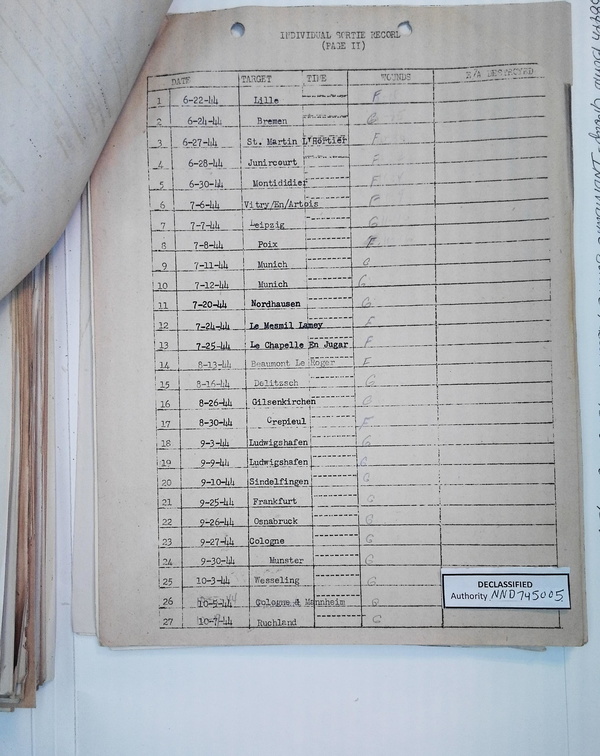 INDIVIDUAL SORTIE RECORD
(PAGE II)
DATE TARGET TIME WOUNDS E/A DESTROYED
1 6-22-44 Lille F
2 6-24-44 Bremen G
3 6-27-44 St. Martin L'Hortier F
4 6-28-44 Junircourt F
5 6-30-44 Montididier F
6 7-6-44 Vitry/En/Artois F
7 7-7-44 Leipzig G
8 7-8-44 Poix F
9 7-11-44 Munich G
10 7-12-44 Munich G
11 7-20-44 Nordhausen G
12 7-24-44 Le Mesmil Lamey F
13 7-25-44 Le Chapelle En Jugar F
14 8-13-44 Beaumont Le Roger F
15 8-16-44 Delitzsch G
16 8-26-44 Gilsenkirchen G
17 8-30-44 Crepieul F
18 9-3-44 Ludwigshafen G
19 9-9-44 Ludwigshafen G
20 9-10-44 Sindelfingen G
21 9-25-44 Frankfurt G
22 9-26-44 Osnabruck G
23 9-27-44 Cologne G
24 9-30-44 Munster G
25 10-3-44 Wesseling G
26 10-5-44 Cologne & Mannheim G
27 10-7-44 Ruchland G
DECLASSIFIED
Authority NND 745005